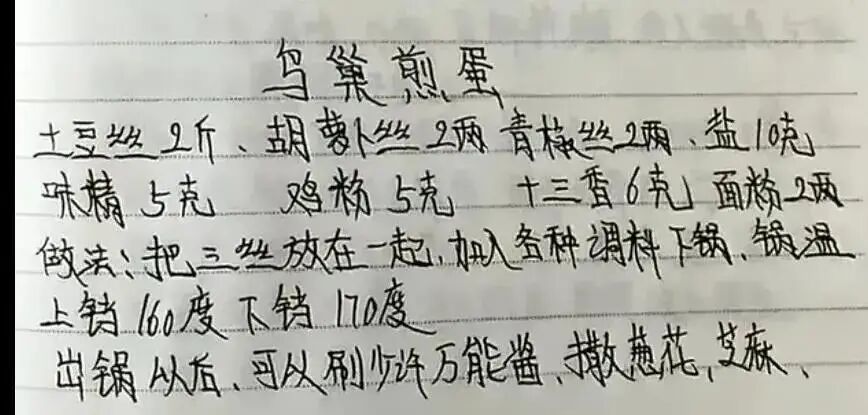 鸟巢煎蛋
土豆丝2斤、胡萝卜丝2两 青椒丝2两、盐10克
味精5克 鸡粉5克 十三香6克 面粉2两
做法:把三丝放在一起,加入各种调料下锅、锅温
上铛160度下铛170度
出锅以后、可以刷少许万能酱、撒葱花、芝麻、